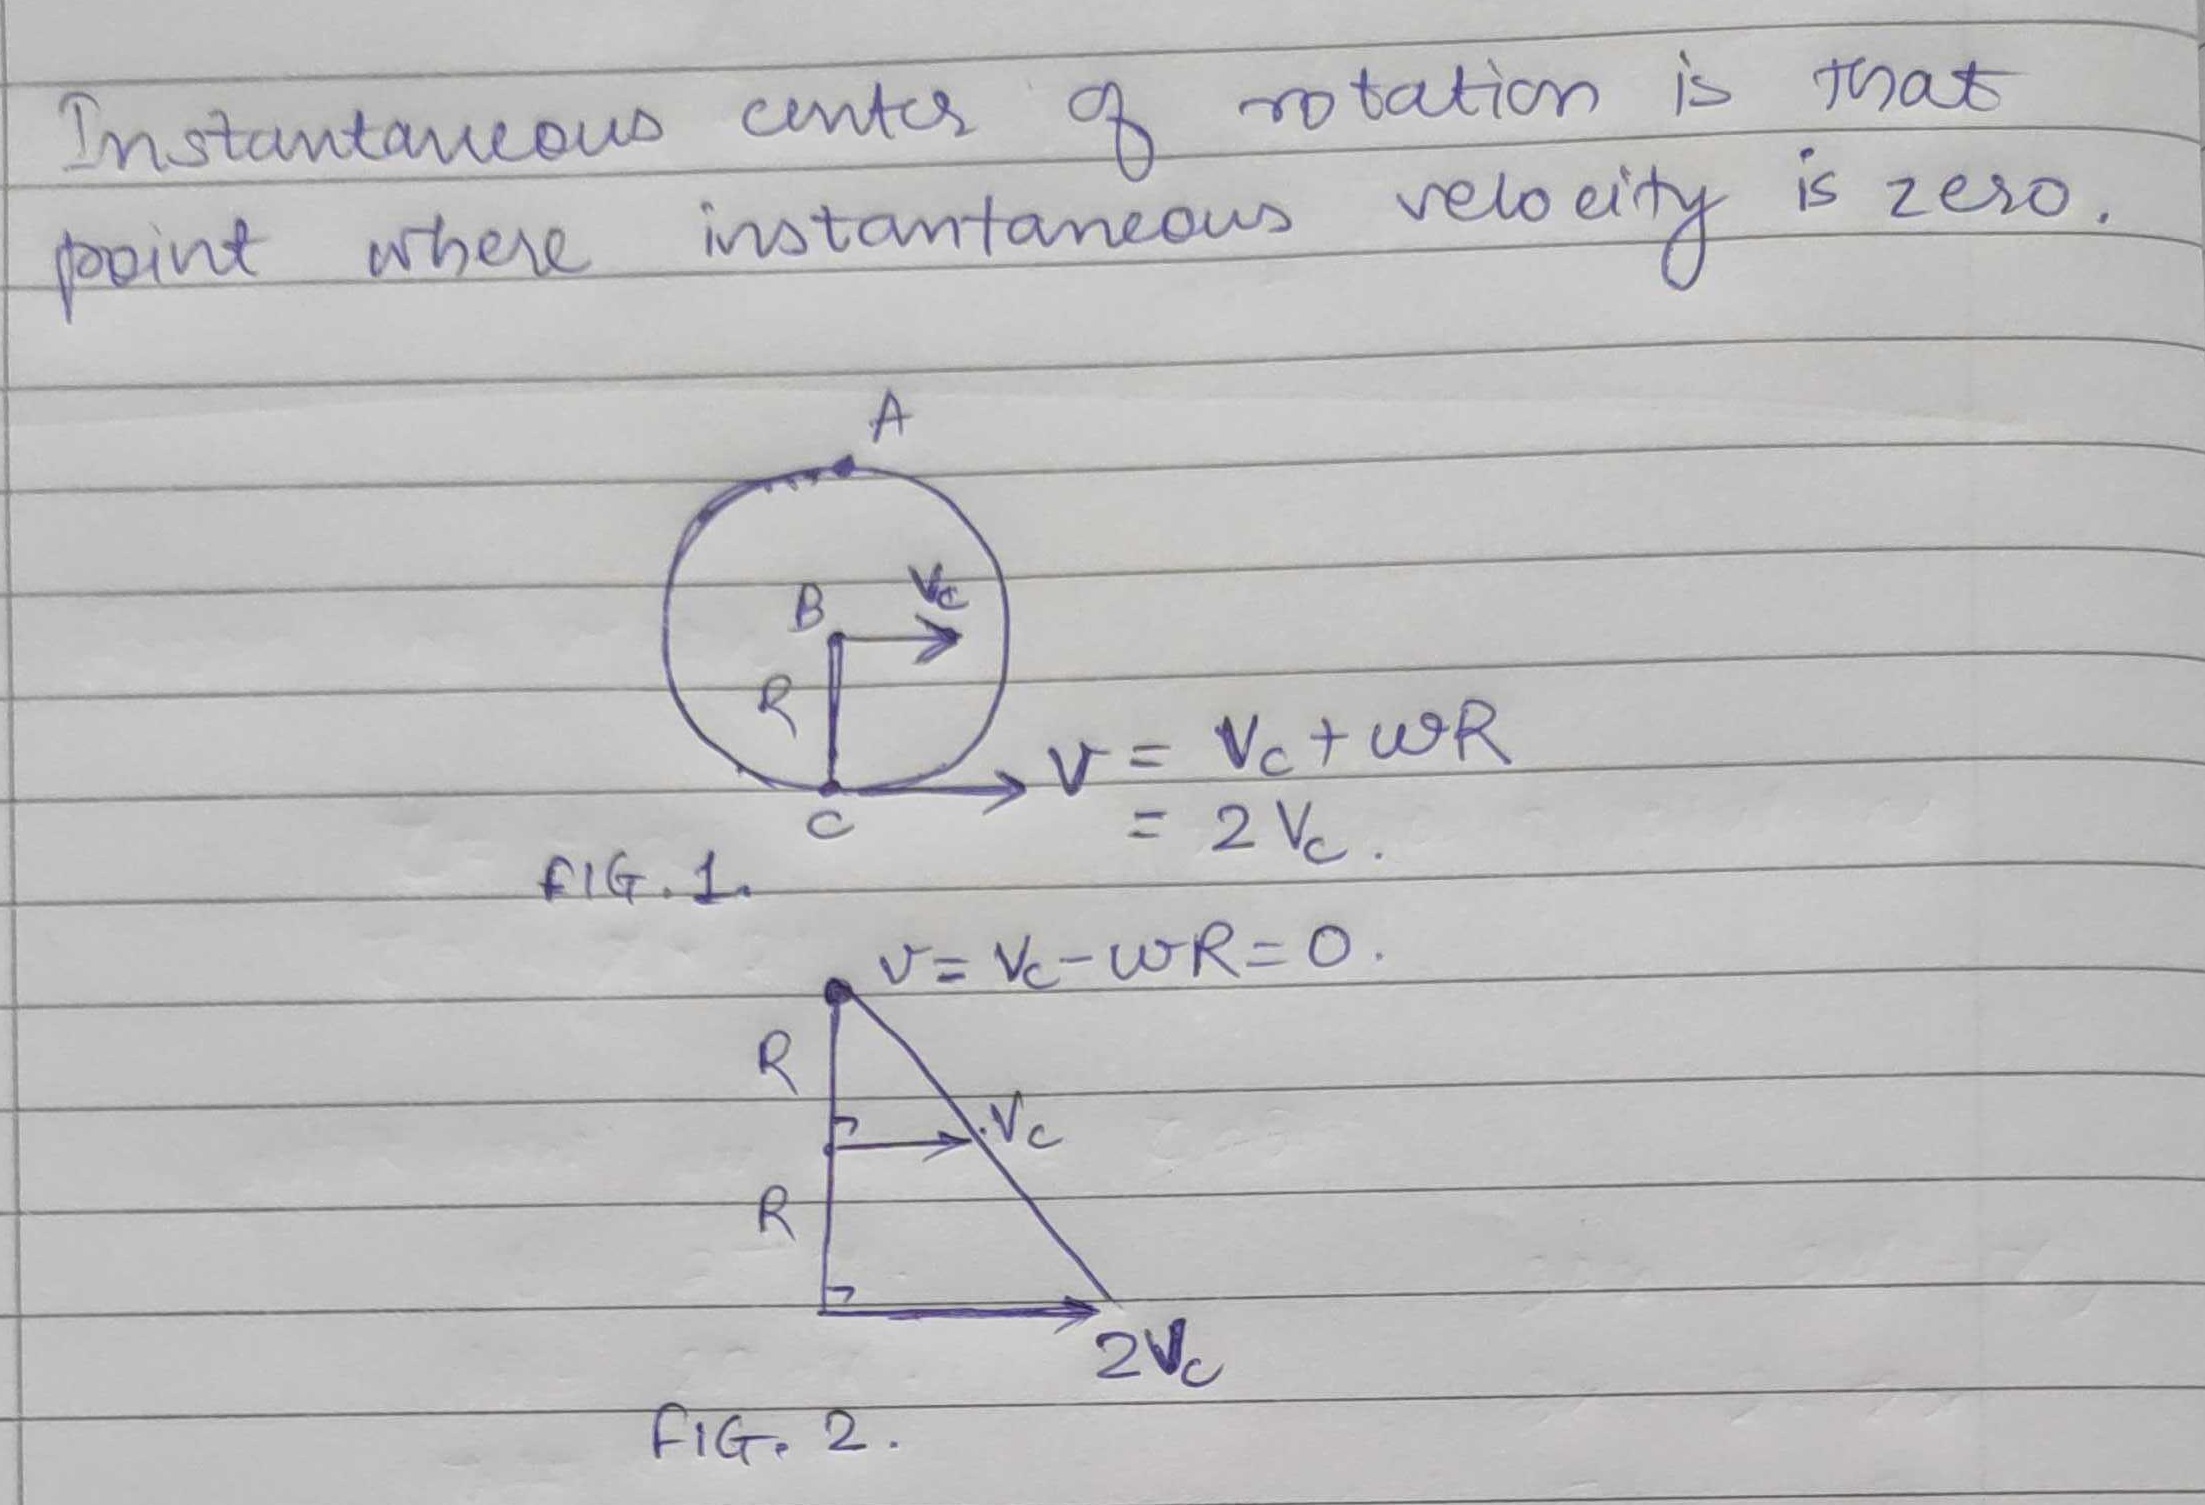 Instantaneous center of rotation is that
point where instantaneous velocity is zero.
A
B
Vc
R
V = Vc + ωR
= 2Vc.
C
FIG. 1.
V = Vc - ωR = 0.
R
Vc
R
2Vc
FIG. 2.